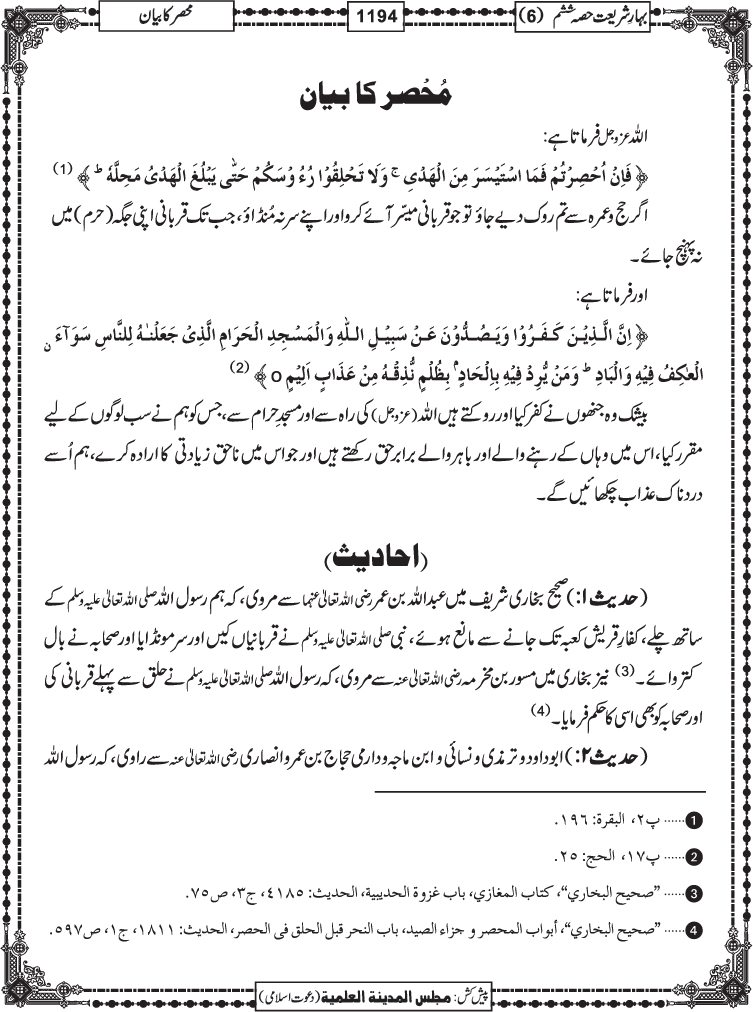 بہارِ شریعت حصہ ششم (6)
1194
محصر کا بیان
مُحْصَر کا بیان
اللہ عزوجل فرماتا ہے:
﴿ فَاِنْ اُحْصِرْتُمْ فَمَا اسْتَیْسَرَ مِنَ الْهَدْیِ ۚ وَلَا تَحْلِقُوْا رُءُوْسَكُمْ حَتّٰی یَبْلُغَ الْهَدْیُ مَحِلَّهٗ ؕ ﴾ (1)
اگر حج و عمرہ سے تم روک دیے جاؤ تو جو قربانی میسّر آئے کرو اور اپنے سر نہ مُنڈاؤ، جب تک قربانی اپنی جگہ (حرم) میں
نہ پہنچ جائے۔
اور فرماتا ہے:
﴿ اِنَّ الَّذِیْنَ كَفَرُوْا وَیَصُدُّوْنَ عَنْ سَبِیْلِ اللّٰهِ وَالْمَسْجِدِ الْحَرَامِ الَّذِیْ جَعَلْنٰهُ لِلنَّاسِ سَوَآءَ ۨ
الْعٰكِفُ فِیْهِ وَالْبَادِ ؕ وَمَنْ یُّرِدْ فِیْهِ بِاِلْحَادٍۭ بِظُلْمٍ نُّذِقْهُ مِنْ عَذَابٍ اَلِیْمٍ o ﴾ (2)
بیشک وہ جنھوں نے کفر کیا اور روکتے ہیں اللہ (عزوجل) کی راہ سے اور مسجدِ حرام سے، جس کو ہم نے سب لوگوں کے لیے
مقرر کیا، اس میں وہاں کے رہنے والے اور باہر والے برابر حق رکھتے ہیں اور جو اس میں ناحق زیادتی کا ارادہ کرے، ہم اُسے
دردناک عذاب چکھائیں گے۔
(احادیث)
(حدیث ۱:) صحیح بخاری شریف میں عبداللہ بن عمر رضی اللہ تعالیٰ عنہما سے مروی، کہ ہم رسول اللہ صلی اللہ تعالیٰ علیہ وسلم کے
ساتھ چلے، کفارِ قریش کعبہ تک جانے سے مانع ہوئے، نبی صلی اللہ تعالیٰ علیہ وسلم نے قربانیاں کیں اور سر مونڈایا اور صحابہ نے بال
کتروائے۔ (3) نیز بخاری میں مسور بن مخرمہ رضی اللہ تعالیٰ عنہ سے مروی، کہ رسول اللہ صلی اللہ تعالیٰ علیہ وسلم نے حلق سے پہلے قربانی کی
اور صحابہ کو بھی اسی کا حکم فرمایا۔ (4)
(حدیث ۲:) ابو داود و ترمذی و نسائی و ابن ماجہ و دارمی حجاج بن عمرو انصاری رضی اللہ تعالیٰ عنہ سے راوی، کہ رسول اللہ
1 ...... پ۲، البقرۃ: ۱۹٦.
2 ...... پ۱۷، الحج: ۲۵.
3 ...... "صحیح البخاري"، کتاب المغازي، باب غزوۃ الحدیبیۃ، الحدیث: ٤۱۸۵، ج۳، ص۷۵.
4 ...... "صحیح البخاري"، أبواب المحصر و جزاء الصید، باب النحر قبل الحلق فی الحصر، الحدیث: ۱۸۱۱، ج۱، ص۵۹۷.
پیش کش: مجلس المدینۃ العلمیۃ (دعوت اسلامی)